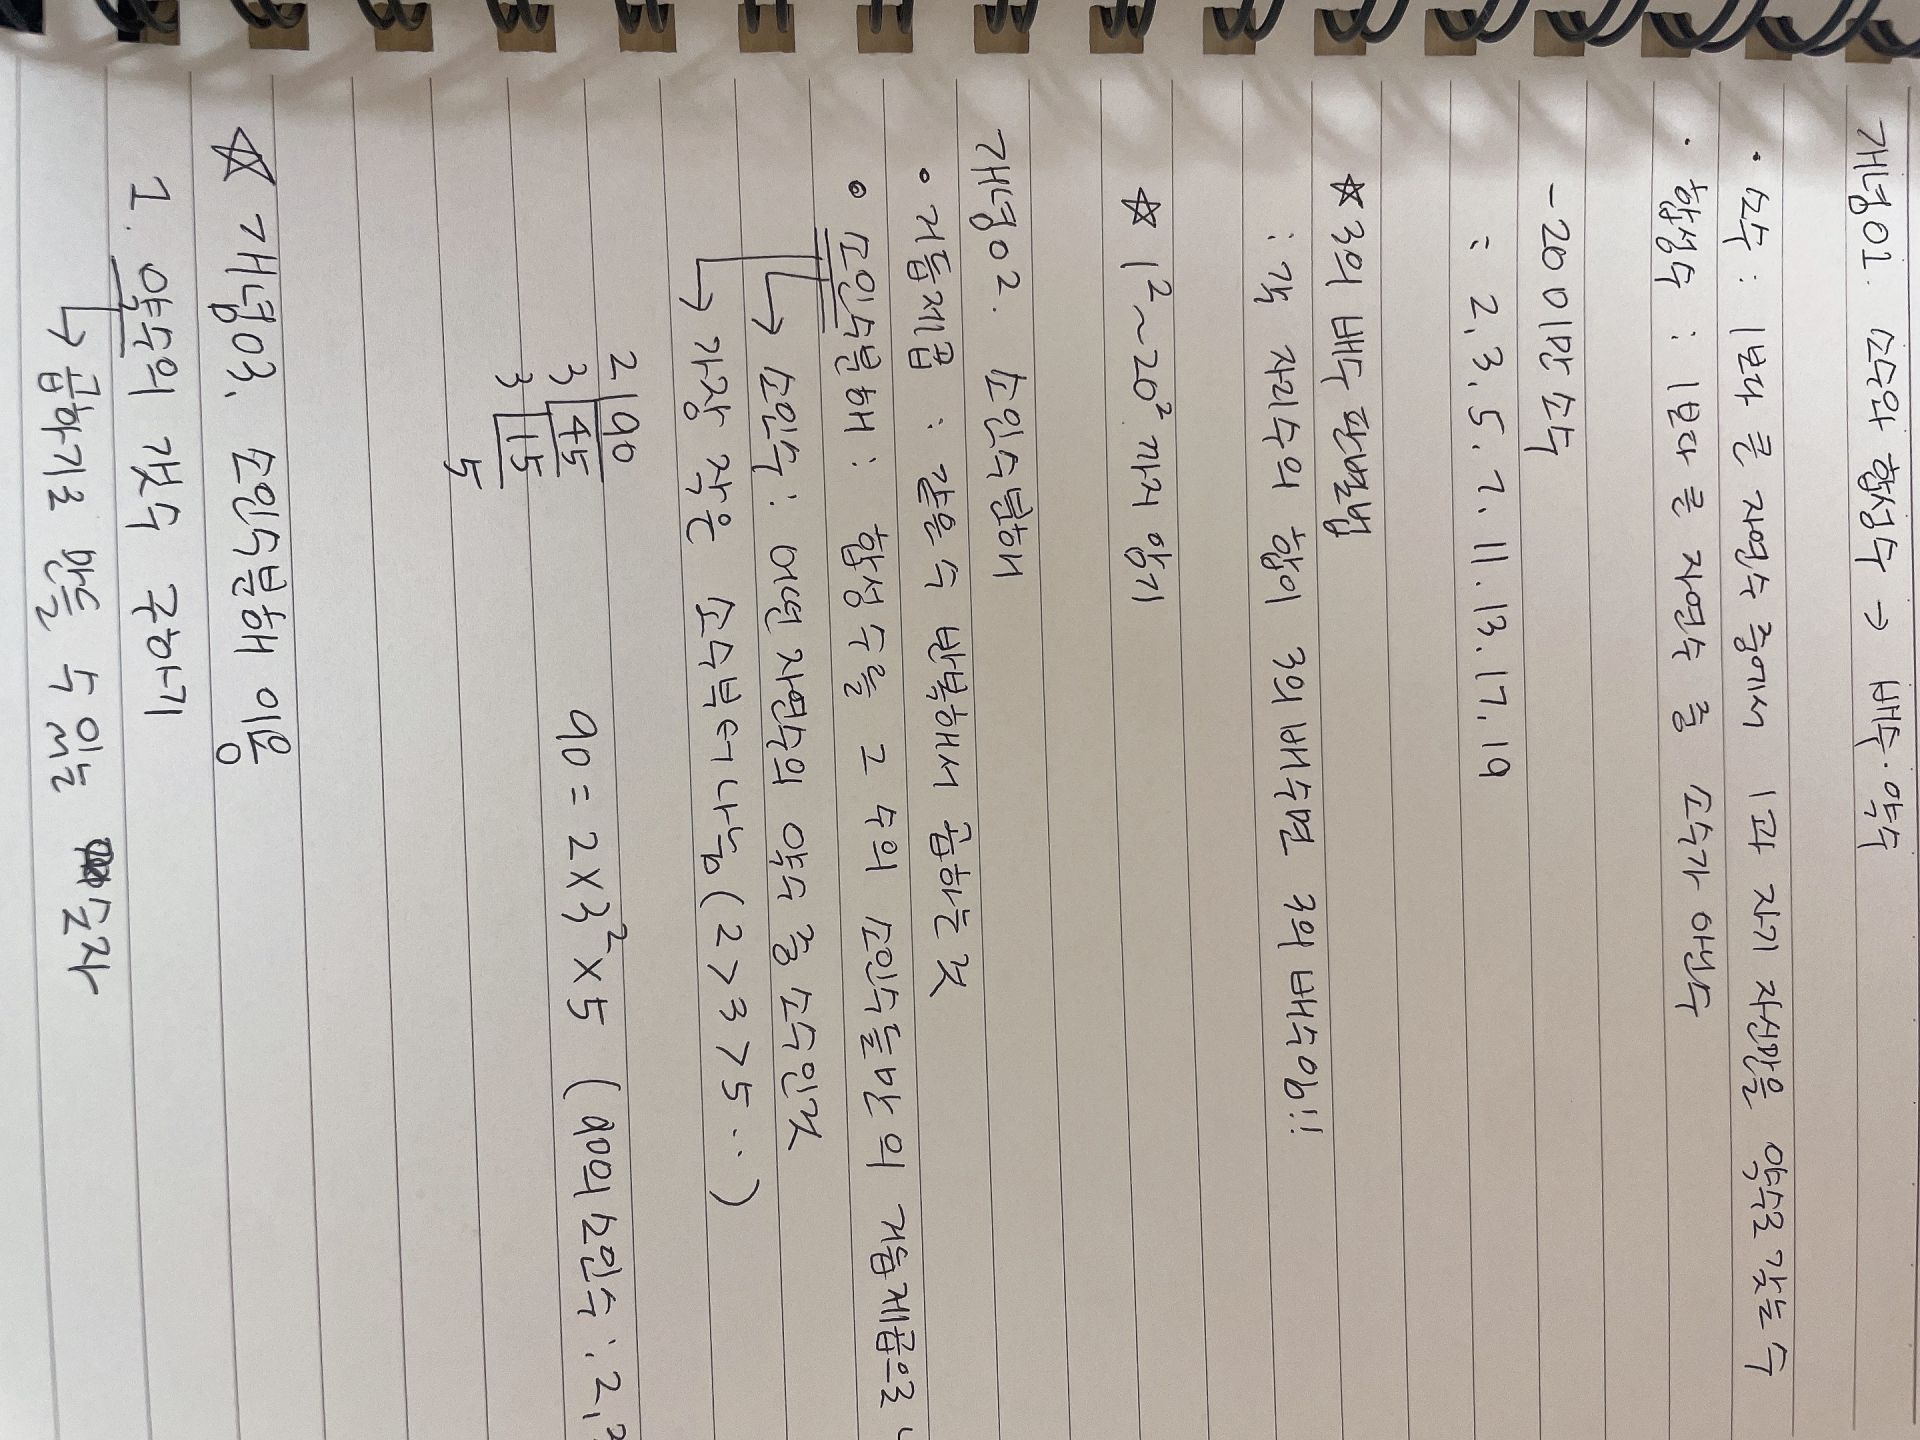 개념01. 소수와 합성수 → 배수·약수
• 소수 : 1보다 큰 자연수 중에서 1과 자기 자신만을 약수로 갖는 수
• 합성수 : 1보다 큰 자연수 중 소수가 아닌수
- 20 미만 소수
= 2, 3, 5. 7. 11. 13. 17. 19
☆ 3의 배수 판별법
: 각 자리수의 합이 3의 배수면 3의 배수야!!
☆ 1²~20² 까지 암기
개념02. 소인수분해
• 거듭제곱 : 같은 수 반복해서 곱하는 것
• 소인수분해 : 합성수를 그 수의 소인수들만의 거듭제곱으로
↳ 소인수 : 어떤 자연수의 약수 중 소수인것
↳ 가장 작은 소수부터 나눔 (2 > 3 > 5 ··)
2 90
3 45
3 15
5
90 = 2 X 3² X 5 (90의 소인수 : 2,
☆ 개념03. 소인수분해 이용
1. 약수의 갯수 구하기
↳ 곱하기로 만들 수 있는 숫자